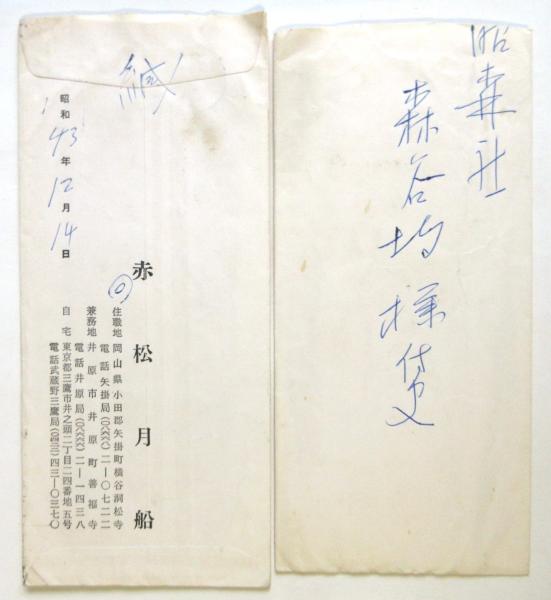 昭森社
森谷均様
緘
赤松月船
住職地 岡山県小田郡矢掛町横谷洞松寺
電話矢掛局(〇八六六八)二―〇七二二
兼務地 井原市井原町善福寺
電話井原局(〇八六六六)二―一四三八
自宅 東京都三鷹市井之頭二丁目二四番地五号
電話武蔵野三鷹局(〇四二二)四三―〇三七〇
昭和43年12月14日